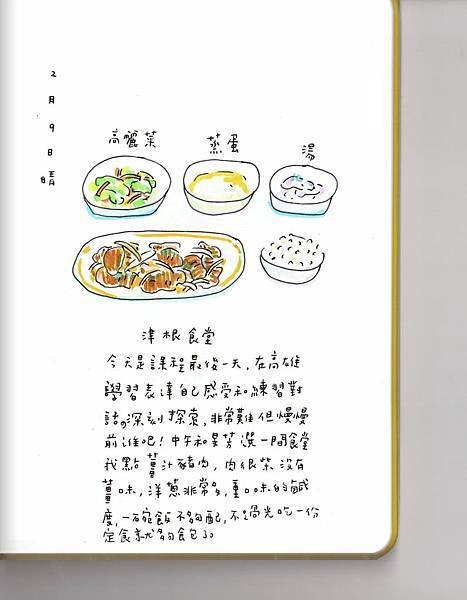 2月9日 晴
高麗菜
蒸蛋
湯
津根食堂
今天是課程最後一天,在高雄
學習表達自己感受和練習對
話的深刻探索,非常難但慢慢
前進吧!中午和昱芳選一間食堂
我點薑汁豬肉,肉很柴沒有
薑味,洋蔥非常多,重口味的鹹
度,一碗飯不夠配,不過光吃一份
定食就夠食包了。